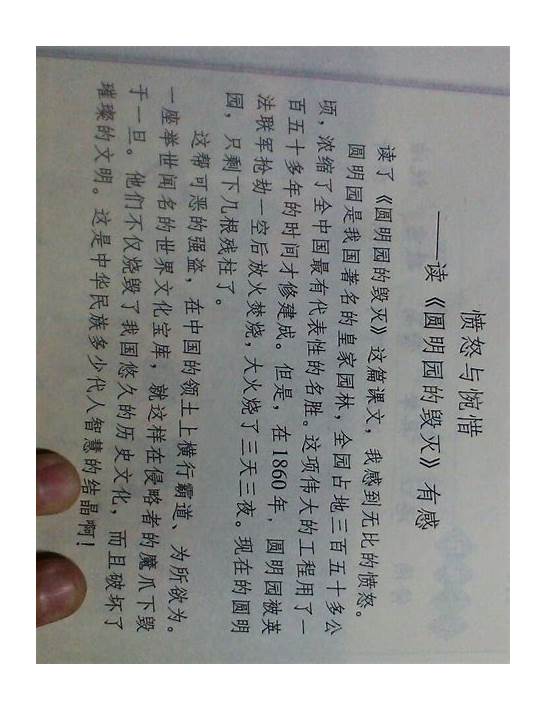 愤怒与惋惜
——读《圆明园的毁灭》有感
读了《圆明园的毁灭》这篇课文，我感到无比的愤怒。
圆明园是我国著名的皇家园林，全园占地三百五十多公
顷，浓缩了全中国最有代表性的名胜。这项伟大的工程用了一
百五十多年的时间才修建成。但是，在1860年，圆明园被英
法联军抢劫一空后放火焚烧，大火烧了三天三夜。现在的圆明
园，只剩下几根残柱了。
这帮可恶的强盗，在中国的领土上横行霸道、为所欲为。
一座举世闻名的世界文化宝库，就这样在侵略者的魔爪下毁
于一旦。他们不仅烧毁了我国悠久的历史文化，而且破坏了
璀璨的文明。这是中华民族多少代人智慧的结晶啊！